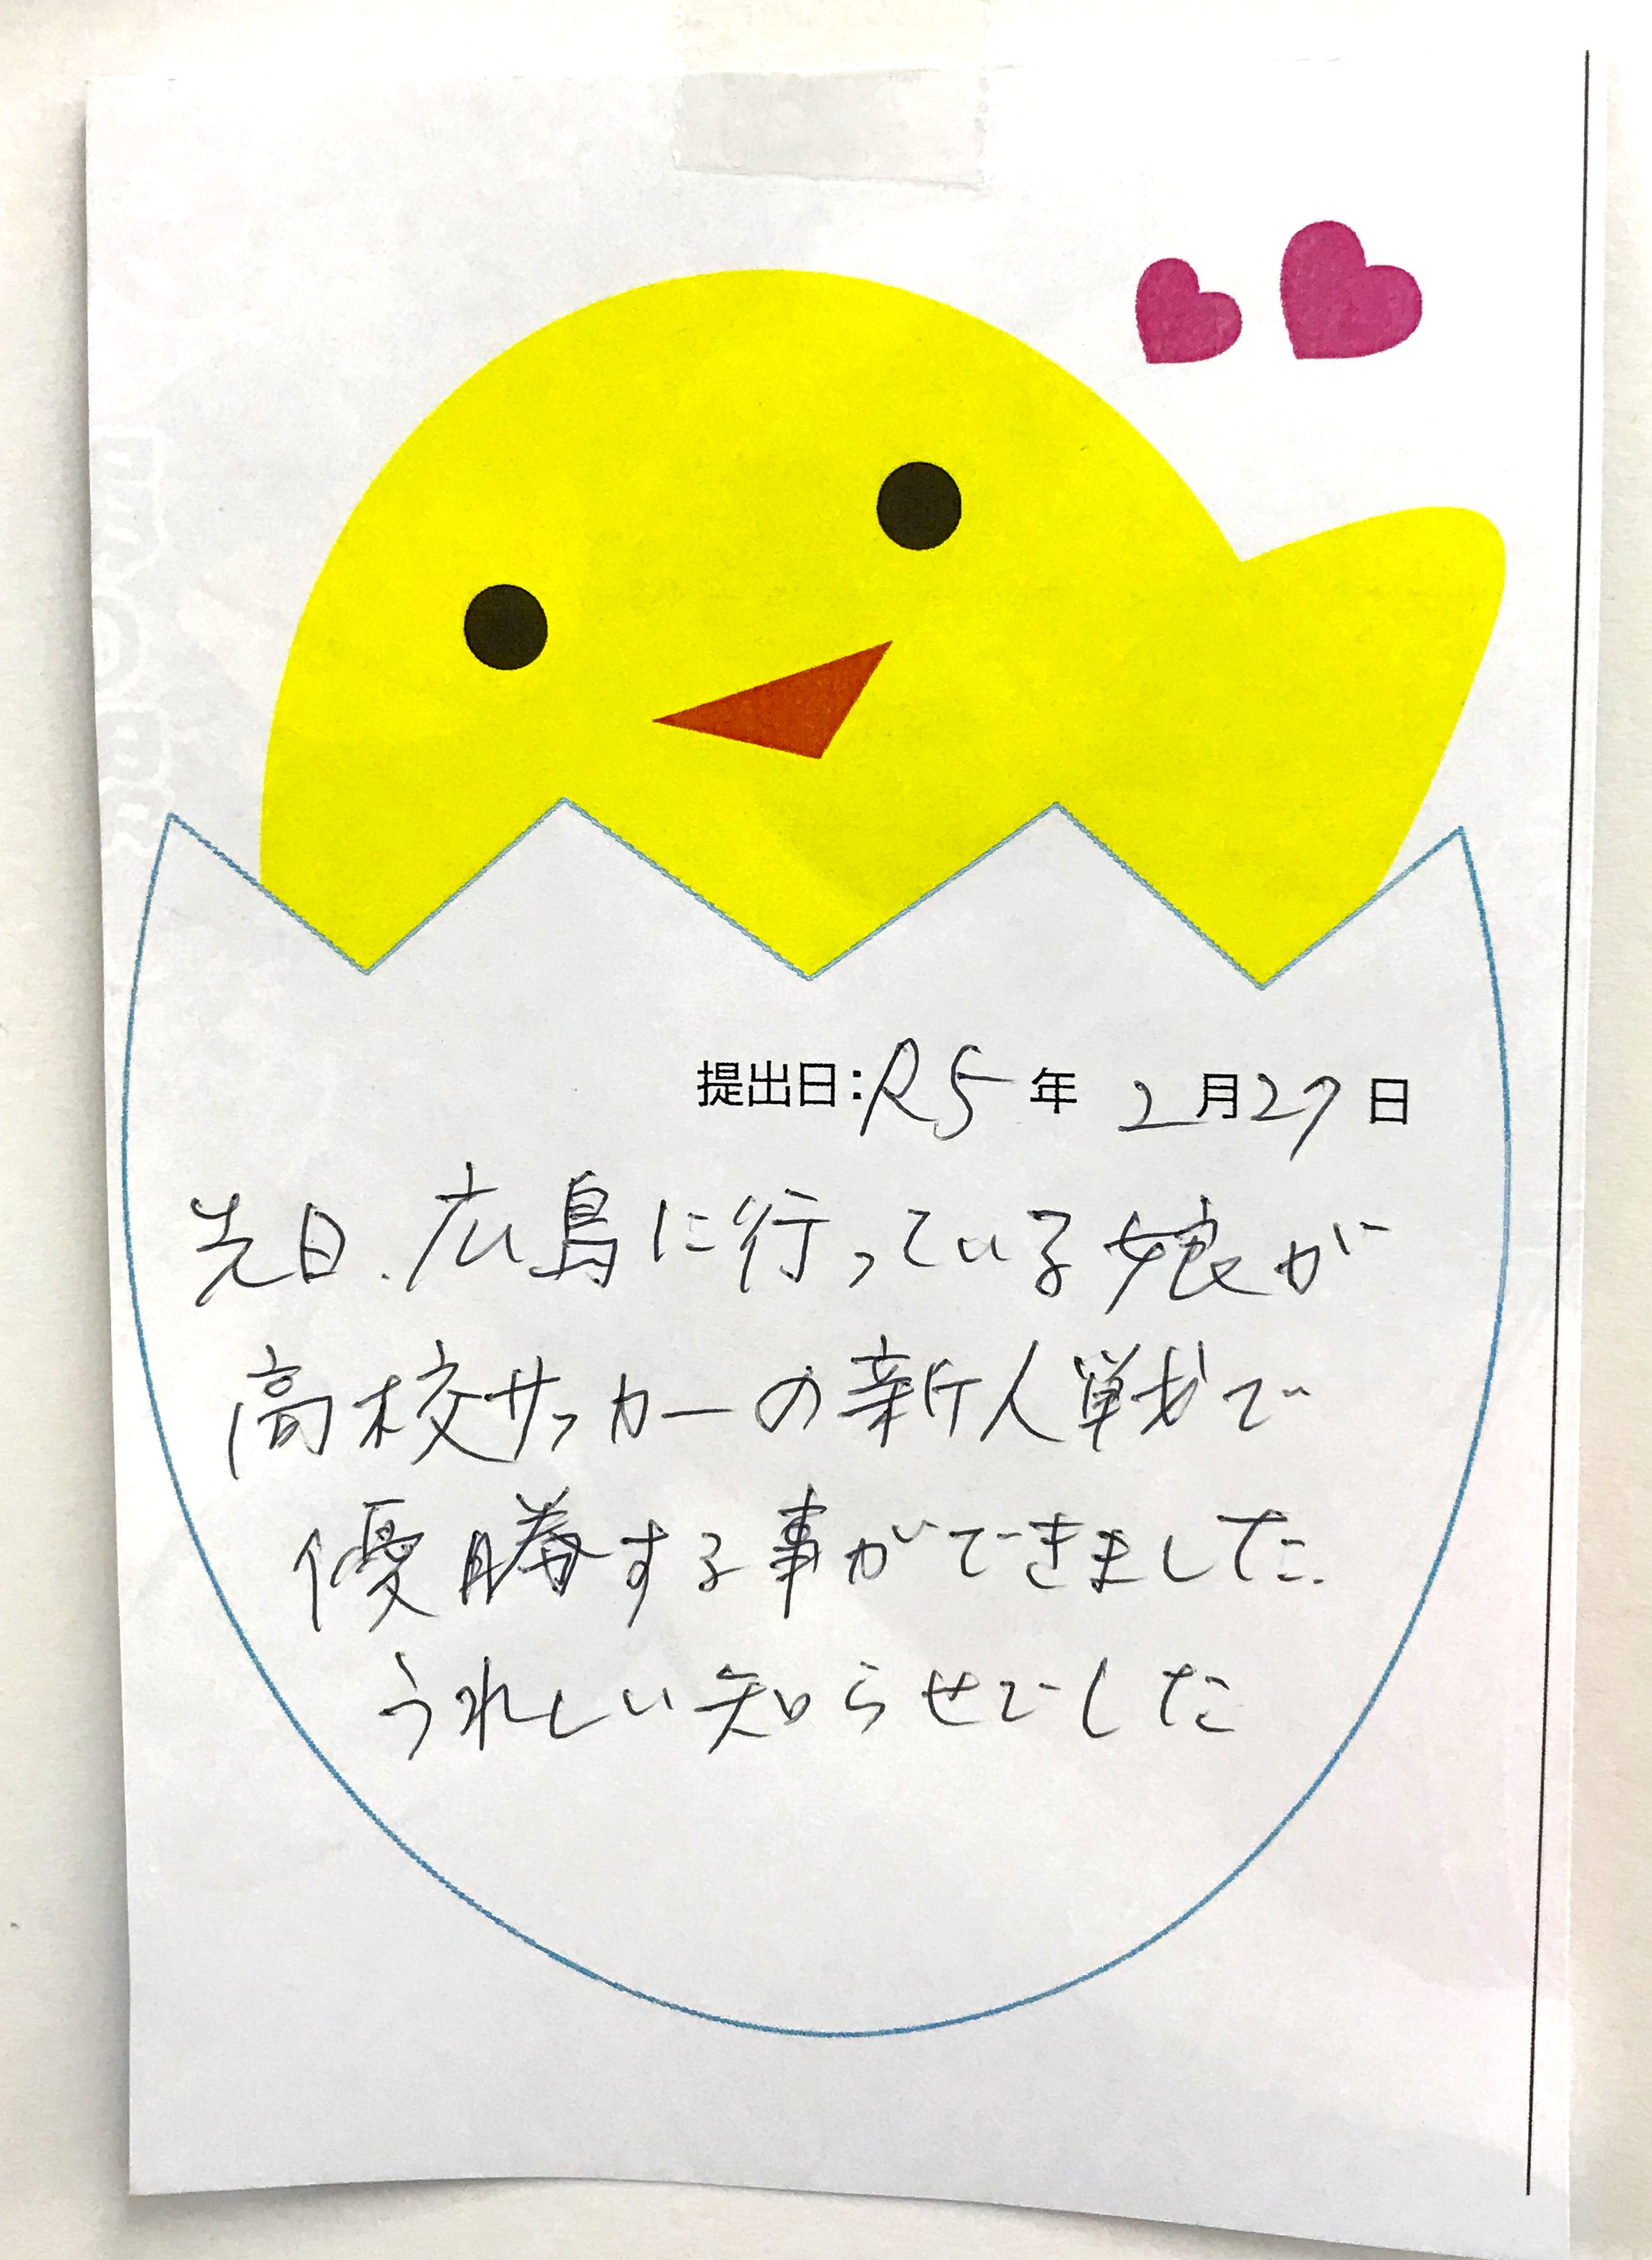 提出日:R5年 2月27日
先日、広島に行っている娘が
高校サッカーの新人戦で
優勝する事ができました.
うれしい知らせでした